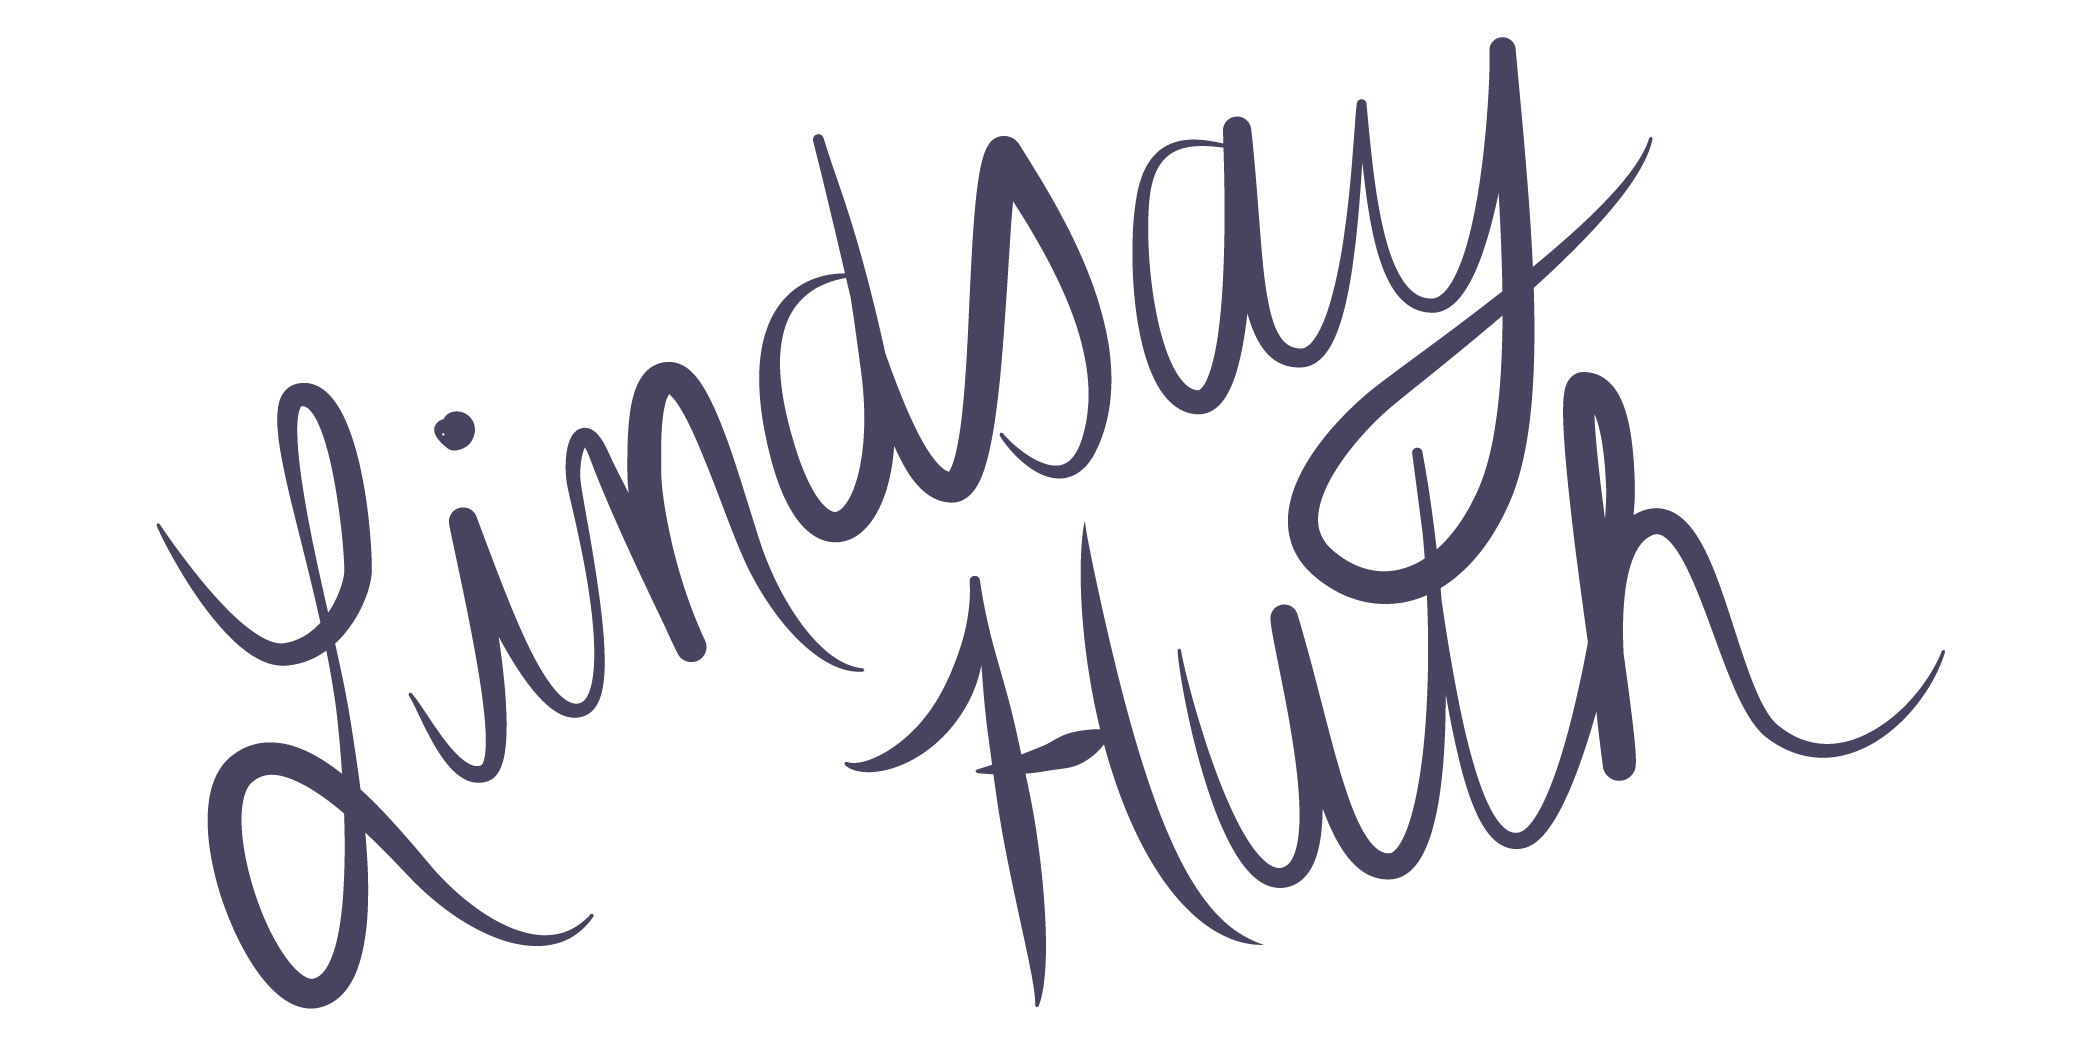 Lindsay
Huth